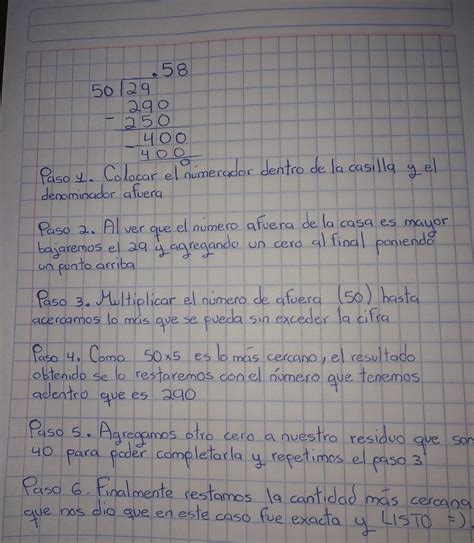 .58
50 29
290
- 250
- 400
400
0
Paso 1. Colocar el numerador dentro de la casilla y el
denominador afuera
Paso 2. Al ver que el número afuera de la casa es mayor
bajaremos el 29 y agregando un cero al final poniendo
un punto arriba
Paso 3. Multiplicar el número de afuera (50) hasta
acercarnos lo más que se pueda sin exceder la cifra
Paso 4. Como 50x5 es lo más cercano, el resultado
obtenido se lo restaremos con el número que tenemos
adentro que es 290
Paso 5. Agregamos otro cero a nuestro residuo que son
40 para poder completarla y repetimos el paso 3
Paso 6. Finalmente restamos la cantidad más cercana
que nos dio que en este caso fue exacta y LISTO =)